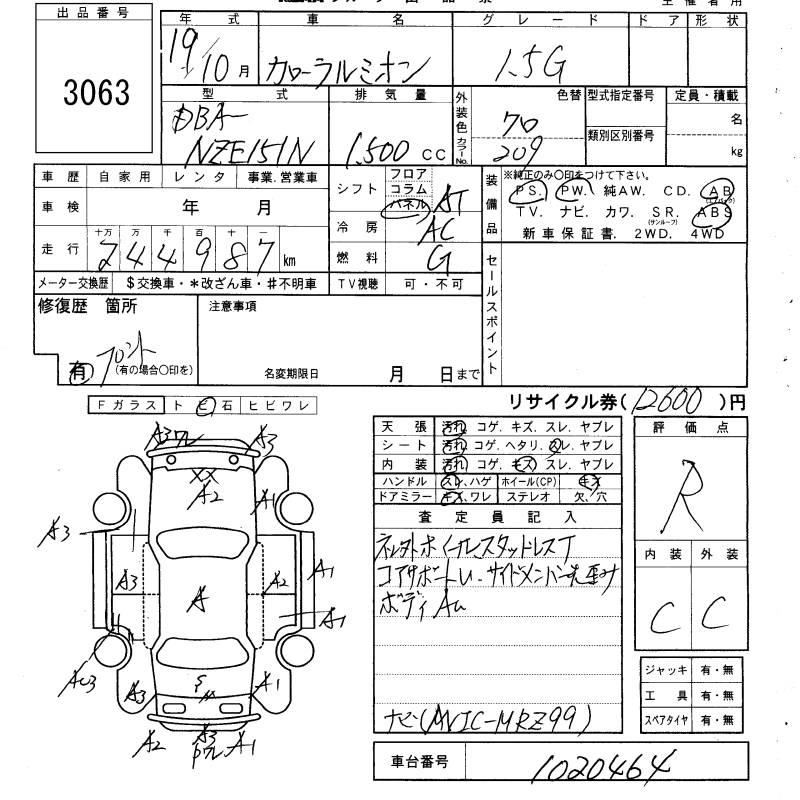 出品番号
3063
年式 車名 グレード ドア 形状
19/10月 カローラルミオン 1.5G
型式 排気量 外装色 カラーNo. 色替 型式指定番号 定員・積載
DBA- NZE151N 1,500cc クロ 209 類別区別番号 名 kg
車歴 自家用 レンタ 事業.営業車
車検 年 月
走行 十万 万 千 百 十 一
244987km
メーター交換歴 $交換車・*改ざん車・#不明車
シフト フロア コラム パネル AT
冷房 AC
燃料 G
TV視聴 可・不可
装備品 ※純正のみ〇印をつけて下さい。
PS. PW. 純AW. CD. AB(エアバック)
TV. ナビ. カワ. SR.(サンルーフ) ABS
新車保証書. 2WD. 4WD
セールスポイント
修復歴 箇所 注意事項
有 フロント
(有の場合〇印を) 名変期限日 月 日まで
リサイクル券(12600)円
Fガラス ト ヒ 石 ヒビワレ
天張 汚れ コゲ. キズ. スレ. ヤブレ
シート 汚れ コゲ. ヘタリ. スレ. ヤブレ
内装 汚れ コゲ. キズ. スレ. ヤブレ
ハンドル スレ.ハゲ ホイール(CP) キズ
ドアミラー キズ.ワレ ステレオ 欠.穴
評価点
R
内装 外装
C C
査定員記入
コアサポートU. サイドメンバー先歪み
ボディAU
ナビ(AVIC-MRZ99)
A3ワレ A3
XX
A2 A1
A3 A3 A2 A1
A A1
A3 A1
A2 A3 A1
ジャッキ 有・無
工具 有・無
スペアタイヤ 有・無
車台番号 1020464